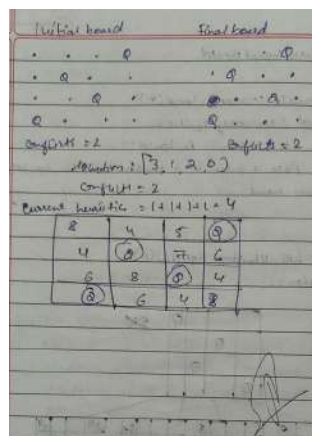 Initial board Final board
. . . Q . . . Q
. Q . . . Q . .
. . Q . . . Q .
Q . . . Q . . .
Conflicts = 2 Conflicts = 2
: [3, 1, 2, 0]
Conflicts = 2
Current heuristic = 1+1+1+1 = 4
8 4 5 Q
4 Q 7 6
6 8 Q 4
Q 6 4 8